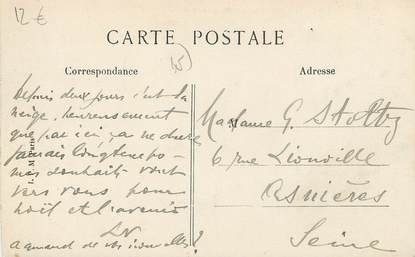 12 €
CARTE POSTALE
15
Correspondance
Adresse
Depuis deux jours c'est la
neige, heureusement
que par ici, ça ne dure
jamais longtemps -
mes souhaits vont
vers vous pour
noël et l'avenir
LN
a quand de vos nouvelles ?
Madame G. Stoltz
6 rue Liouville
Asnières
Seine